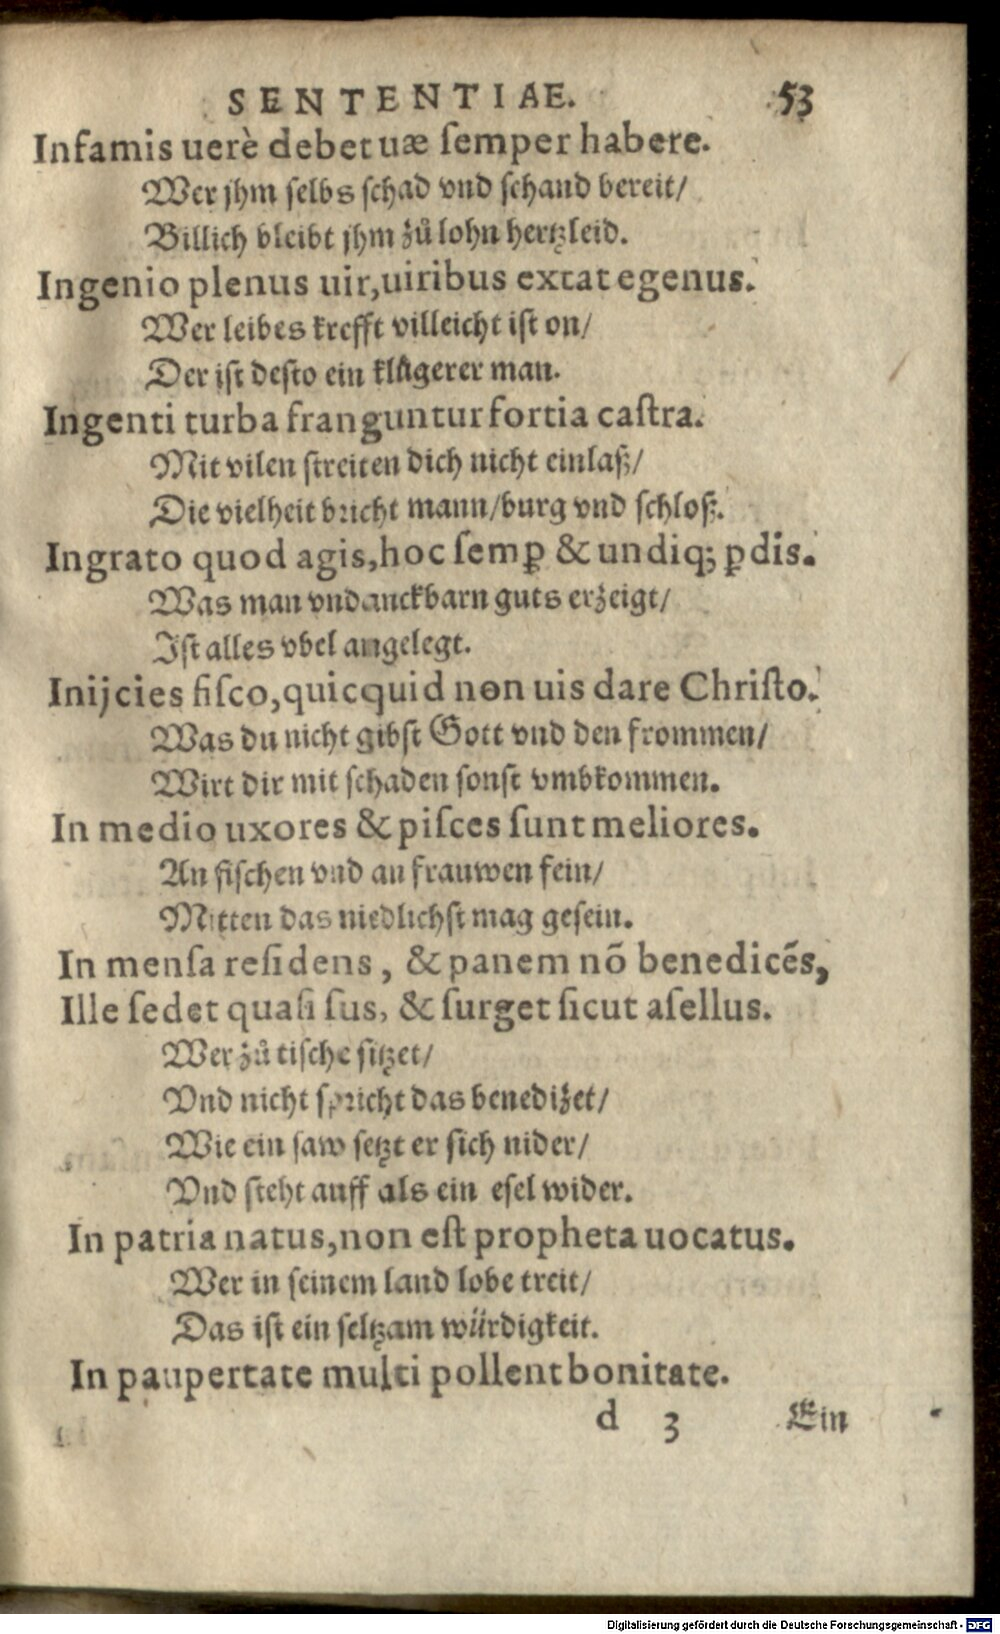 SENTENTIAE. 53
Infamis uerè debet uæ ſemper habere.
Wer jhm ſelbs ſchad vnd ſchand bereit/
Billich bleibt jhm zů lohn hertzleid.
Ingenio plenus uir, uiribus extat egenus.
Wer leibes krefft villeicht iſt on/
Der iſt deſto ein klůgerer man.
Ingenti turba franguntur fortia caſtra.
Mit vilen ſtreiten dich nicht einlaß/
Die vielheit bricht mann/burg vnd ſchloß.
Ingrato quod agis, hoc ſemꝑ & undiqꝫ ꝑdis.
Was man vndanckbarn guts erzeigt/
Iſt alles vbel angelegt.
Inijcies fiſco, quicquid non uis dare Chriſto.
Was du nicht gibſt Gott vnd den frommen/
Wirt dir mit ſchaden ſonſt vmbkommen.
In medio uxores & piſces ſunt meliores.
An fiſchen vnd an frauwen fein/
Mitten das niedlichſt mag geſein.
In menſa reſidens, & panem nõ benedicẽs,
Ille ſedet quaſi ſus, & ſurget ſicut aſellus.
Wer zů tiſche ſitzet/
Vnd nicht ſpricht das benedizet/
Wie ein ſaw ſetzt er ſich nider/
Vnd ſteht auff als ein eſel wider.
In patria natus, non eſt propheta uocatus.
Wer in ſeinem land lobe treit/
Das iſt ein ſeltzam würdigkeit.
In paupertate multi pollent bonitate.
d 3 Ein
Digitalisierung gefördert durch die Deutsche Forschungsgemeinschaft - DFG